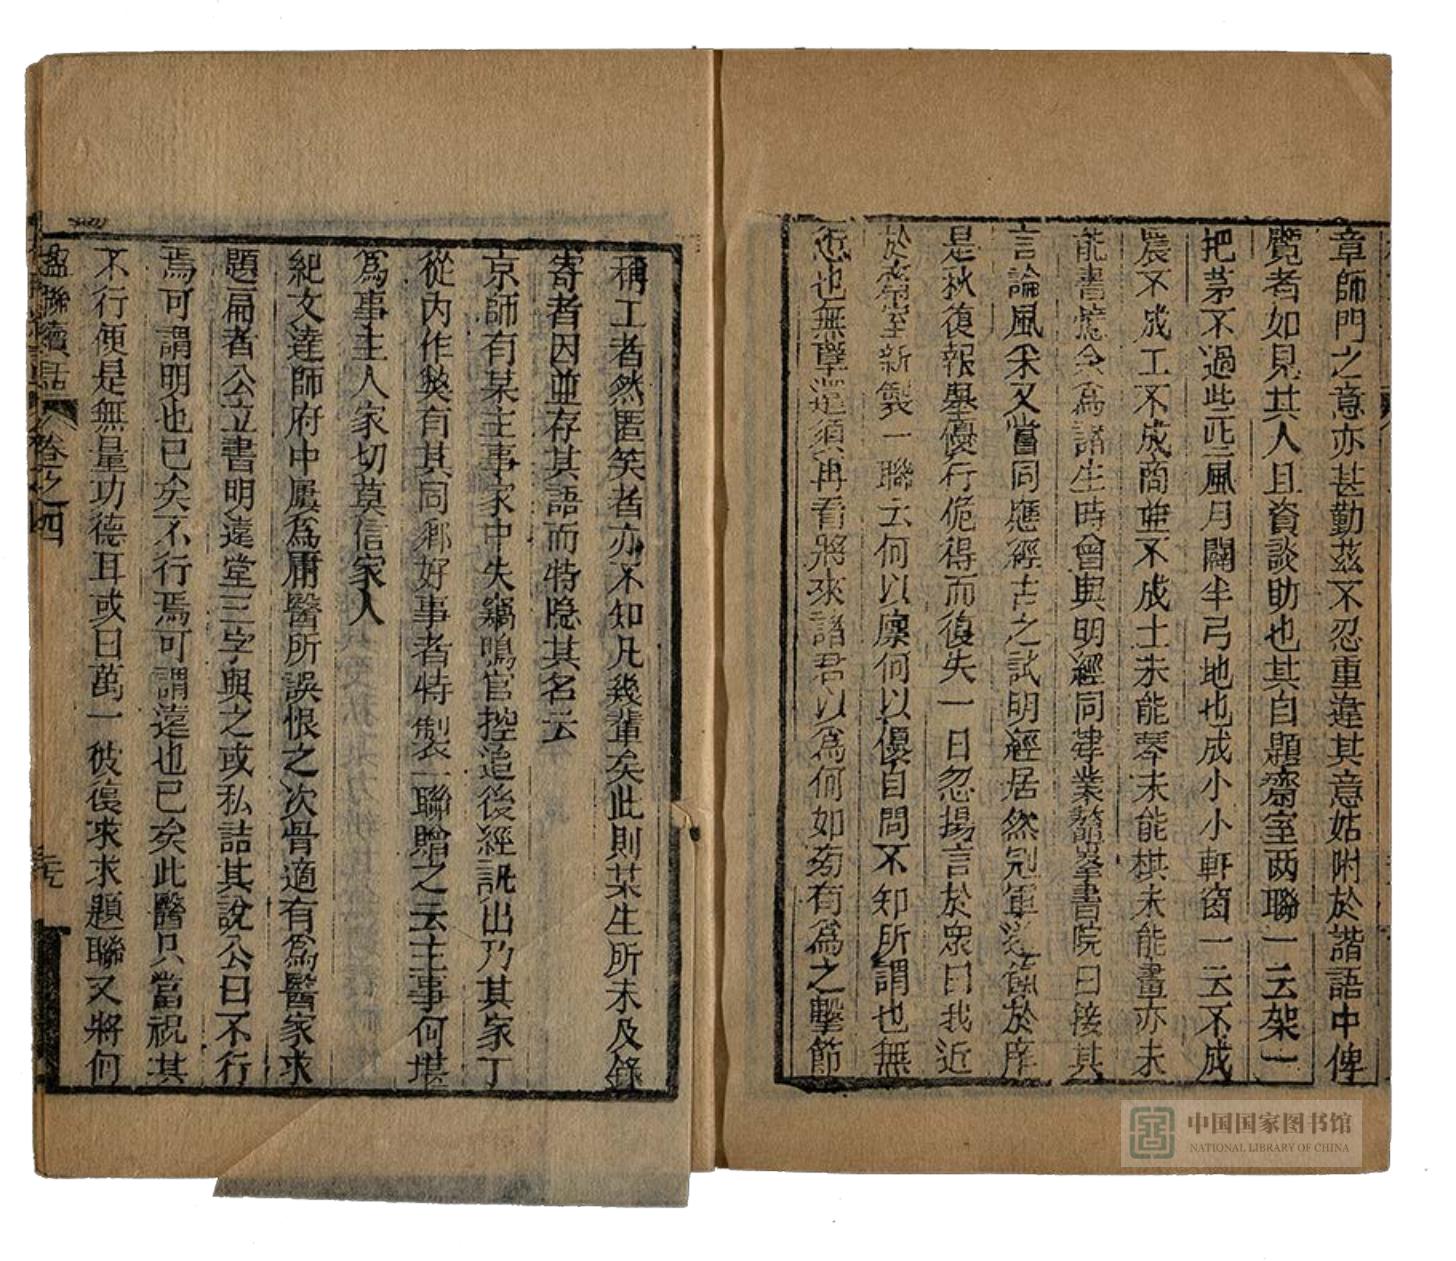 章師門之意亦甚勤茲不忍重違其意姑附於諧語中俾
覽者如見其人且資談助也其自題齋室两聯一云架一
把茅不過些些風月闢半弓地也成小小軒窗一云不成
農不成工不成商並不成士未能琴未能棋未能畫亦未
能書憶余為諸生時曾與明經同肄業鰲峯書院日接其
言論風采又嘗同應經古之試明經居然冠軍遂餼於庠
是秋復報舉優行佹得而復失一日忽揚言於衆曰我近
於齋室新製一聯云何以廩何以優自問不知所謂也無
怨也無擊還須再看將來諸君以為何如茍有為之擊節
稱工者然匿笑者亦不知凡幾輩矣此則某生所未及錄
寄者因並存其語而特隐其名云
京師有某主事家中失竊鳴官控追後經訊出乃其家丁
從内作獘有其同鄉好事者特製一聯贈之云主事何堪
為事主人家切莫信家人
紀文達師府中屢為庸醫所誤恨之次骨適有為醫家求
題扁者公立書明遠堂三字與之或私詰其說公曰不行
焉可謂明也已矣不行焉可謂遠也已矣此醫只當祝其
不行便是無量功德耳或曰萬一彼復求求題聯又將何
楹聯續話 卷之四